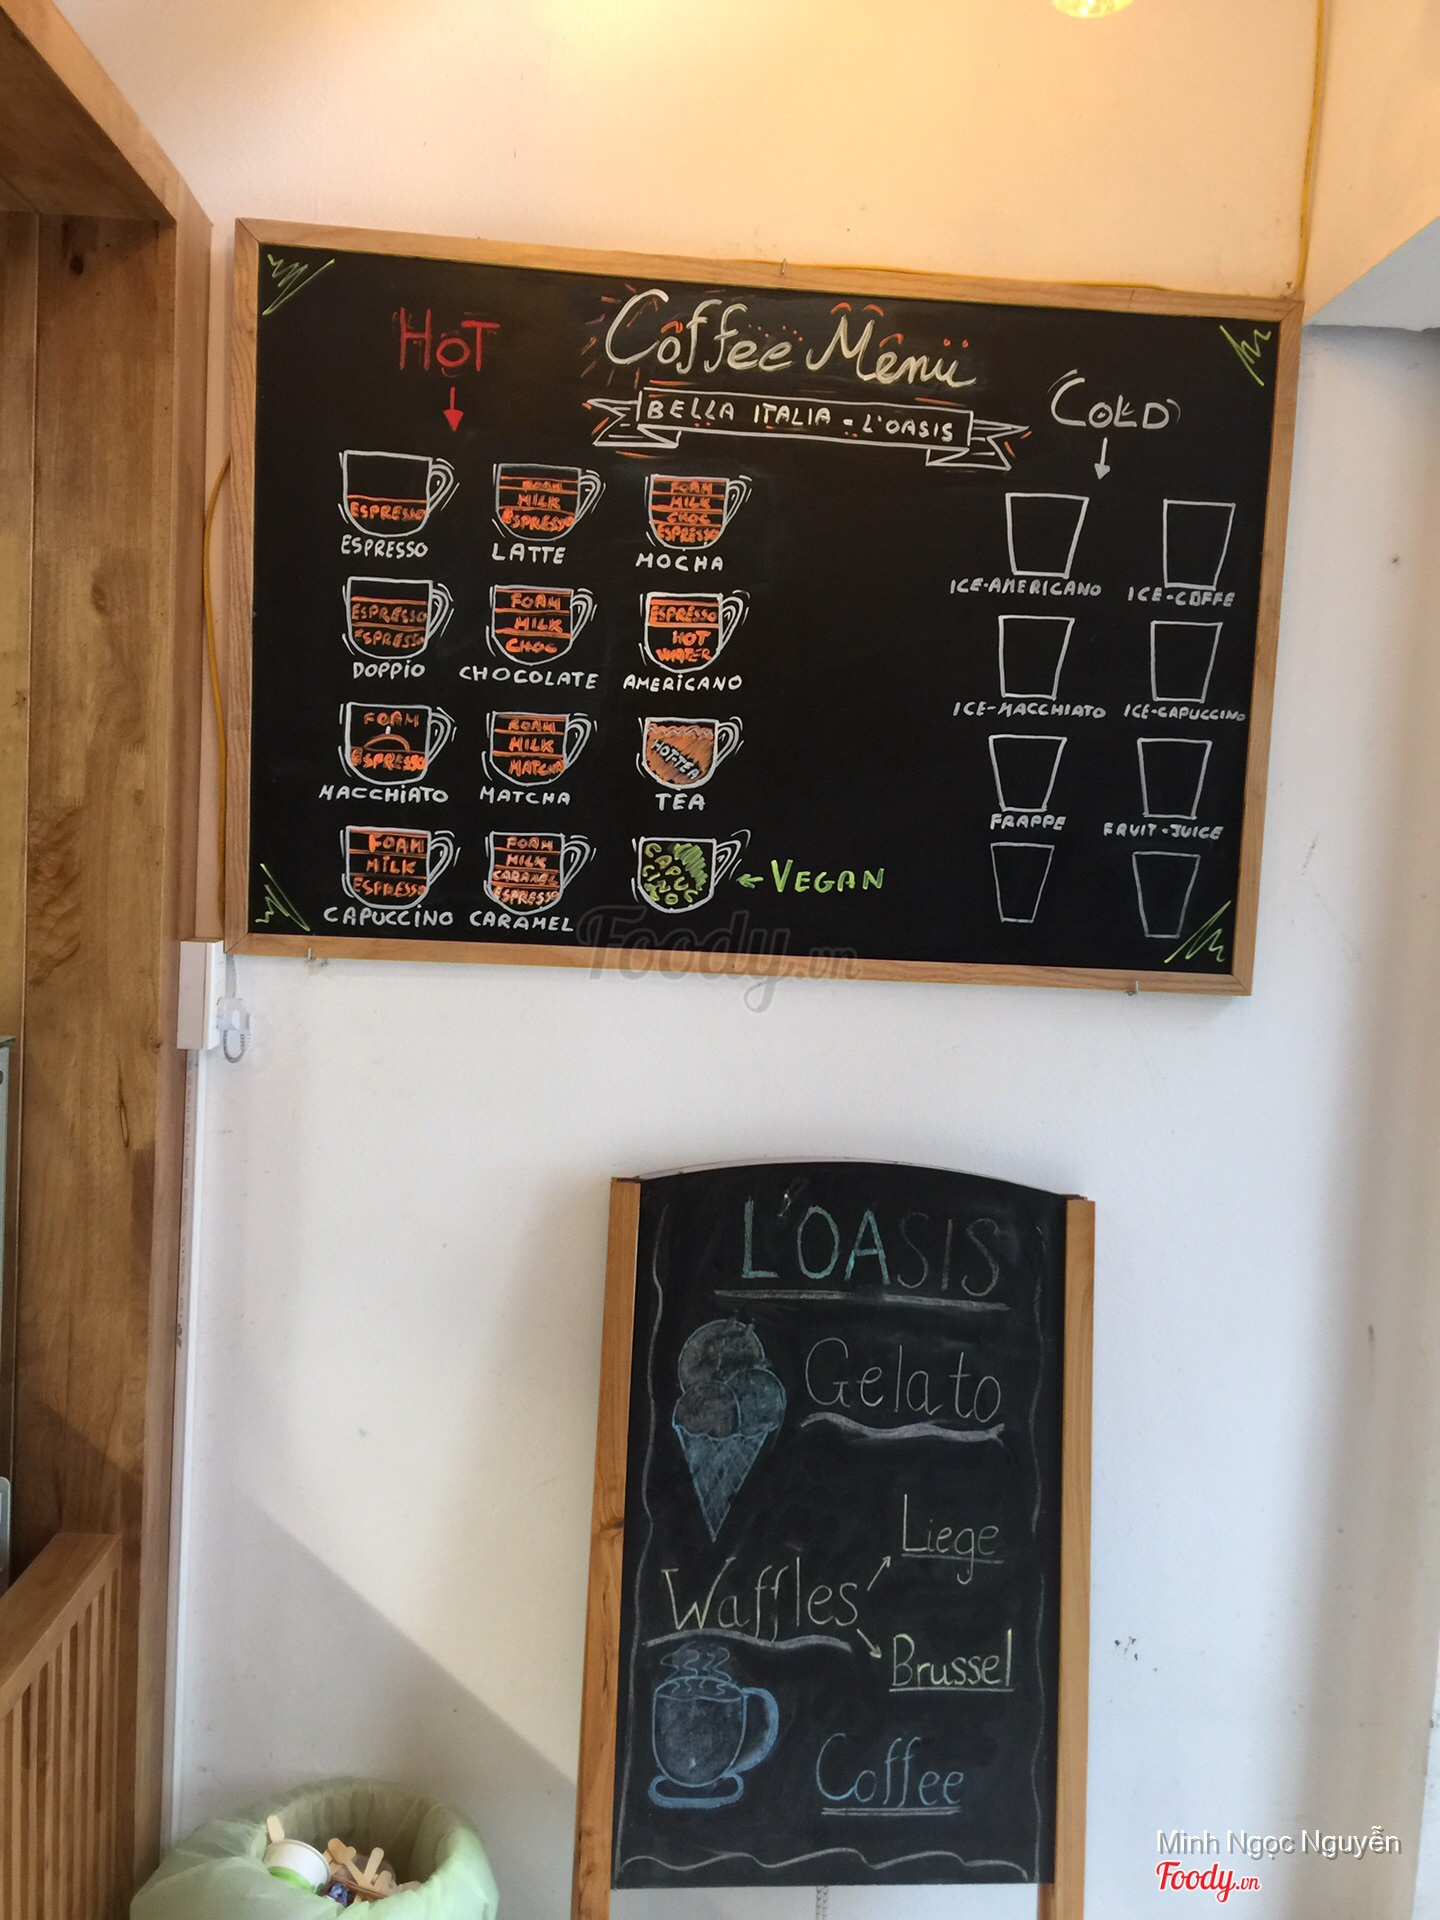 Coffee Menu
HOT
BELLA ITALIA - L'OASIS
COLD
ESPRESSO
ESPRESSO
FOAM
MILK
ESPRESSO
LATTE
FOAM
MILK
CHOC
ESPRESSO
MOCHA
ESPRESSO
ESPRESSO
DOPPIO
FOAM
MILK
CHOC
CHOCOLATE
ESPRESSO
HOT
WATER
AMERICANO
FOAM
ESPRESSO
MACCHIATO
FOAM
MILK
MATCHA
MATCHA
HOT-TEA
TEA
FOAM
MILK
ESPRESSO
CAPUCCINO
FOAM
MILK
CARAMEL
ESPRESSO
CARAMEL
CAPUCCINO
VEGAN
ICE-AMERICANO
ICE-COFFE
ICE-MACCHIATO
ICE-CAPUCCINO
FRAPPE
FRUIT-JUICE
Foody.vn
L'OASIS
Gelato
Liege
Waffles
Brussel
Coffee
Minh Ngọc Nguyễn
Foody.vn